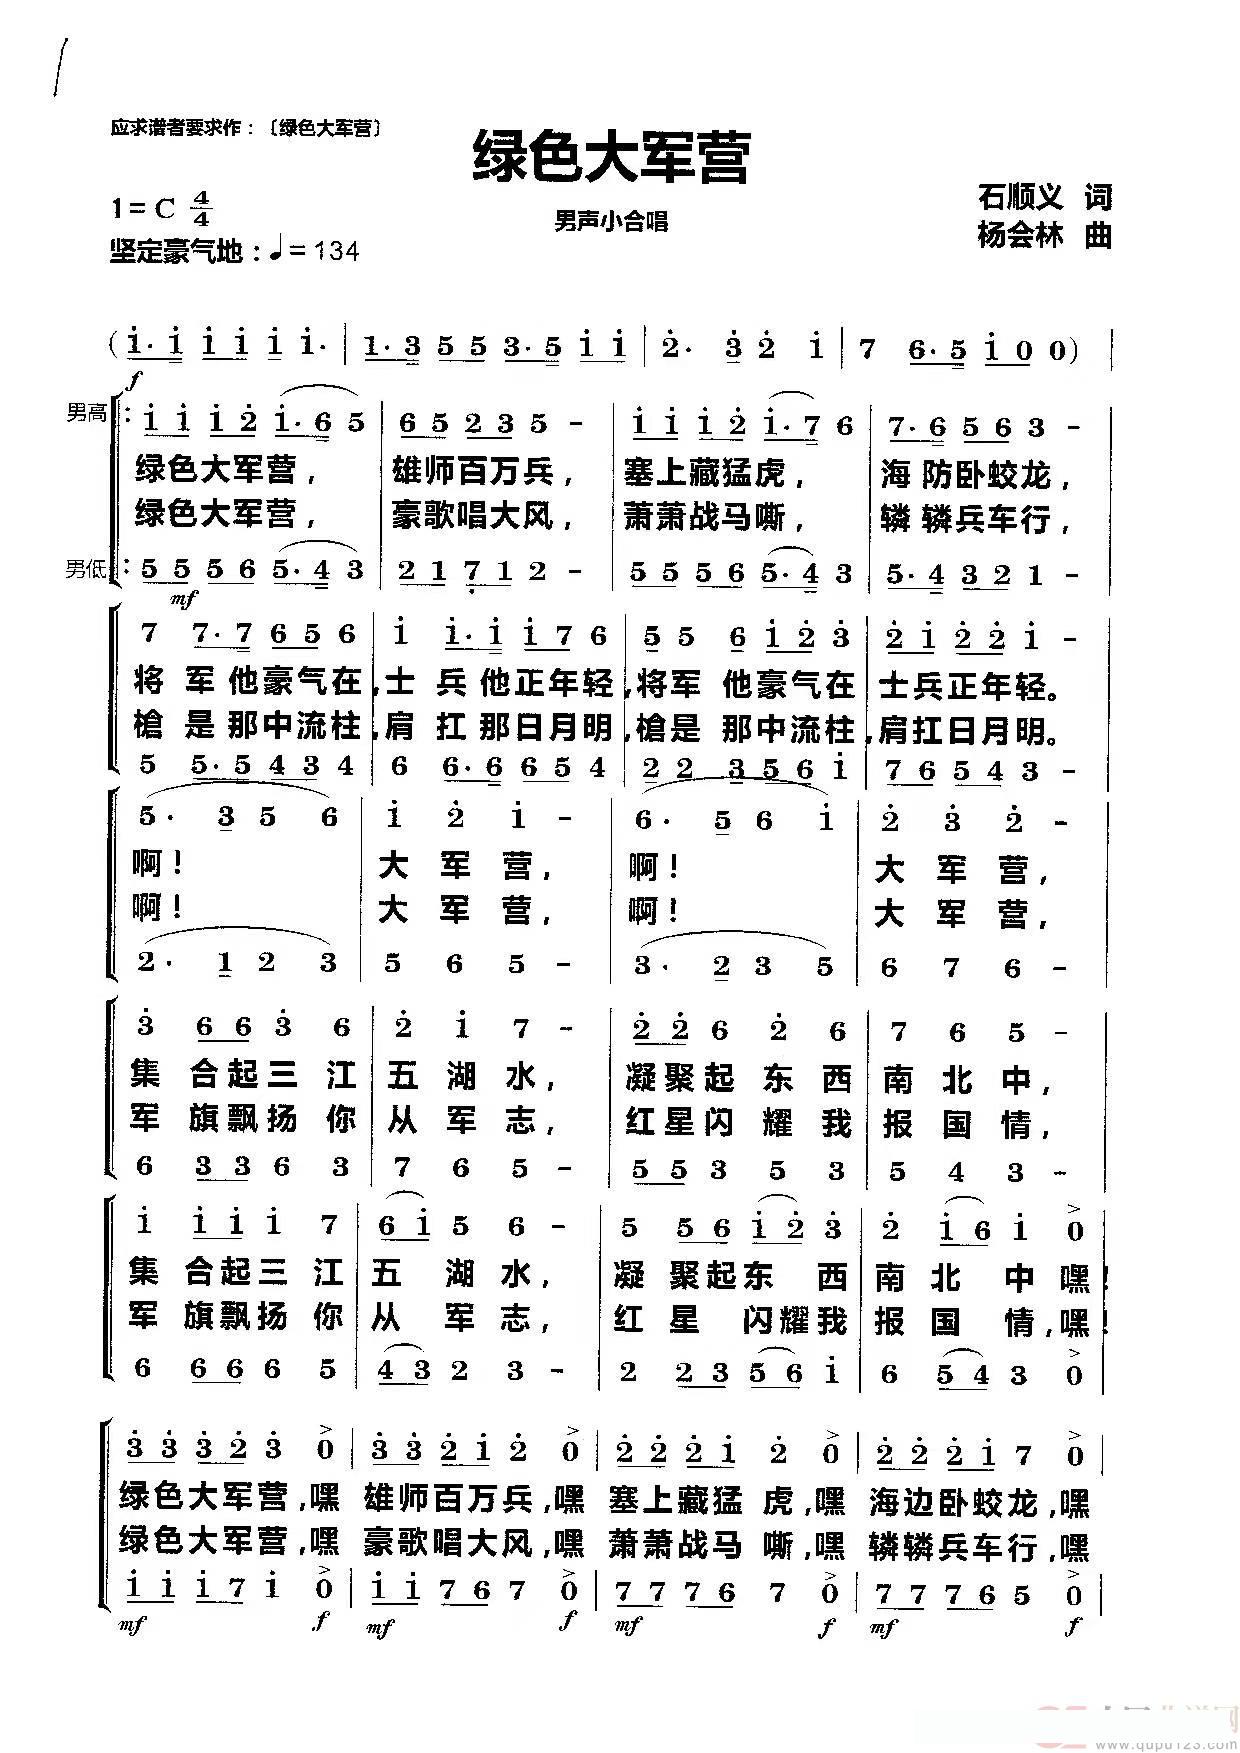 应求谱者要求作：〔绿色大军营〕
绿色大军营
1=C 4/4
男声小合唱
石顺义 词
杨会林 曲
坚定豪气地：♩=134
(i·i i i i i· | 1·3 5 5 3·5 i i | 2· 3 2 i | 7 6·5 i 0 0) |
f
男高：i i i 2 i·6 5 | 6 5 2 3 5 - | i i i 2 i·7 6 | 7·6 5 6 3 -
绿色大军营， 雄师百万兵， 塞上藏猛虎， 海防卧蛟龙，
绿色大军营， 豪歌唱大风， 萧萧战马嘶， 辚辚兵车行，
男低：5 5 5 6 5·4 3 | 2 1 7 1 2 - | 5 5 5 6 5·4 3 | 5·4 3 2 1 -
mf
7 7·7 6 5 6 | i i·i i 7 6 | 5 5 6 i 2 3 | 2 i 2 2 i -
将军他豪气在，士兵他正年轻，将军他豪气在 士兵正年轻。
槍是那中流柱，肩扛那日月明，槍是那中流柱，肩扛日月明。
5 5·5 4 3 4 | 6 6·6 6 5 4 | 2 2 3 5 6 i | 7 6 5 4 3 -
5· 3 5 6 | i 2 i - | 6· 5 6 i | 2 3 2 -
啊！ 大军营， 啊！ 大军营，
啊！ 大军营， 啊！ 大军营，
2· 1 2 3 | 5 6 5 - | 3· 2 3 5 | 6 7 6 -
3 6 6 3 6 | 2 i 7 - | 2 2 6 2 6 | 7 6 5 -
集合起三江五湖水， 凝聚起东西南北中，
军旗飘扬你从军志， 红星闪耀我报国情，
6 3 3 6 3 | 7 6 5 - | 5 5 3 5 3 | 5 4 3 -
i i i i 7 | 6 i 5 6 - | 5 5 6 i 2 3 | 2 i 6 i 0
集合起三江五湖水， 凝聚起东西南北中嘿！
军旗飘扬你从军志， 红星闪耀我报国情，嘿！
6 6 6 6 5 | 4 3 2 3 - | 2 2 3 5 6 i | 6 5 4 3 0
3 3 3 2 3 0 | 3 3 2 i 2 0 | 2 2 2 i 2 0 | 2 2 2 i 7 0
绿色大军营，嘿 雄师百万兵，嘿 塞上藏猛虎，嘿 海边卧蛟龙，嘿
绿色大军营，嘿 豪歌唱大风，嘿 萧萧战马嘶，嘿 辚辚兵车行，嘿
i i i 7 i 0 | i i 7 6 7 0 | 7 7 7 6 7 0 | 7 7 7 6 5 0
mf f mf f mf f mf f
www.qupu123.com